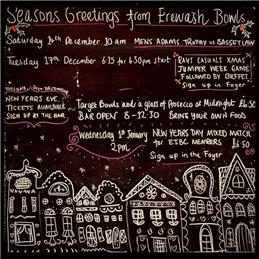 Seasons Greetings from Erewash Bowls
Saturday 14th December 10 am MENS ADAMS TROPHY vs BASSETLAW
Tuesday 17th December 6.15 for 6.30pm start
RAYS CASUALS XMAS
JUMPER WEEK GAME
FOLLOWED BY BUFFET
Sign up in Foyer
TUESDAY 31st DECEMBER
NEW YEARS EVE
TICKETS AVAILABLE
SIGN UP AT THE BAR
Target Bowls and a glass of Prosecco at Midnight £6.50
BAR OPEN 8-12.30 BRING YOUR OWN FOOD
Wednesday 1st January
2pm
NEW YEARS DAY MIXED
FOR EIBC MEMBERS £6.50
Sign up in the Foyer